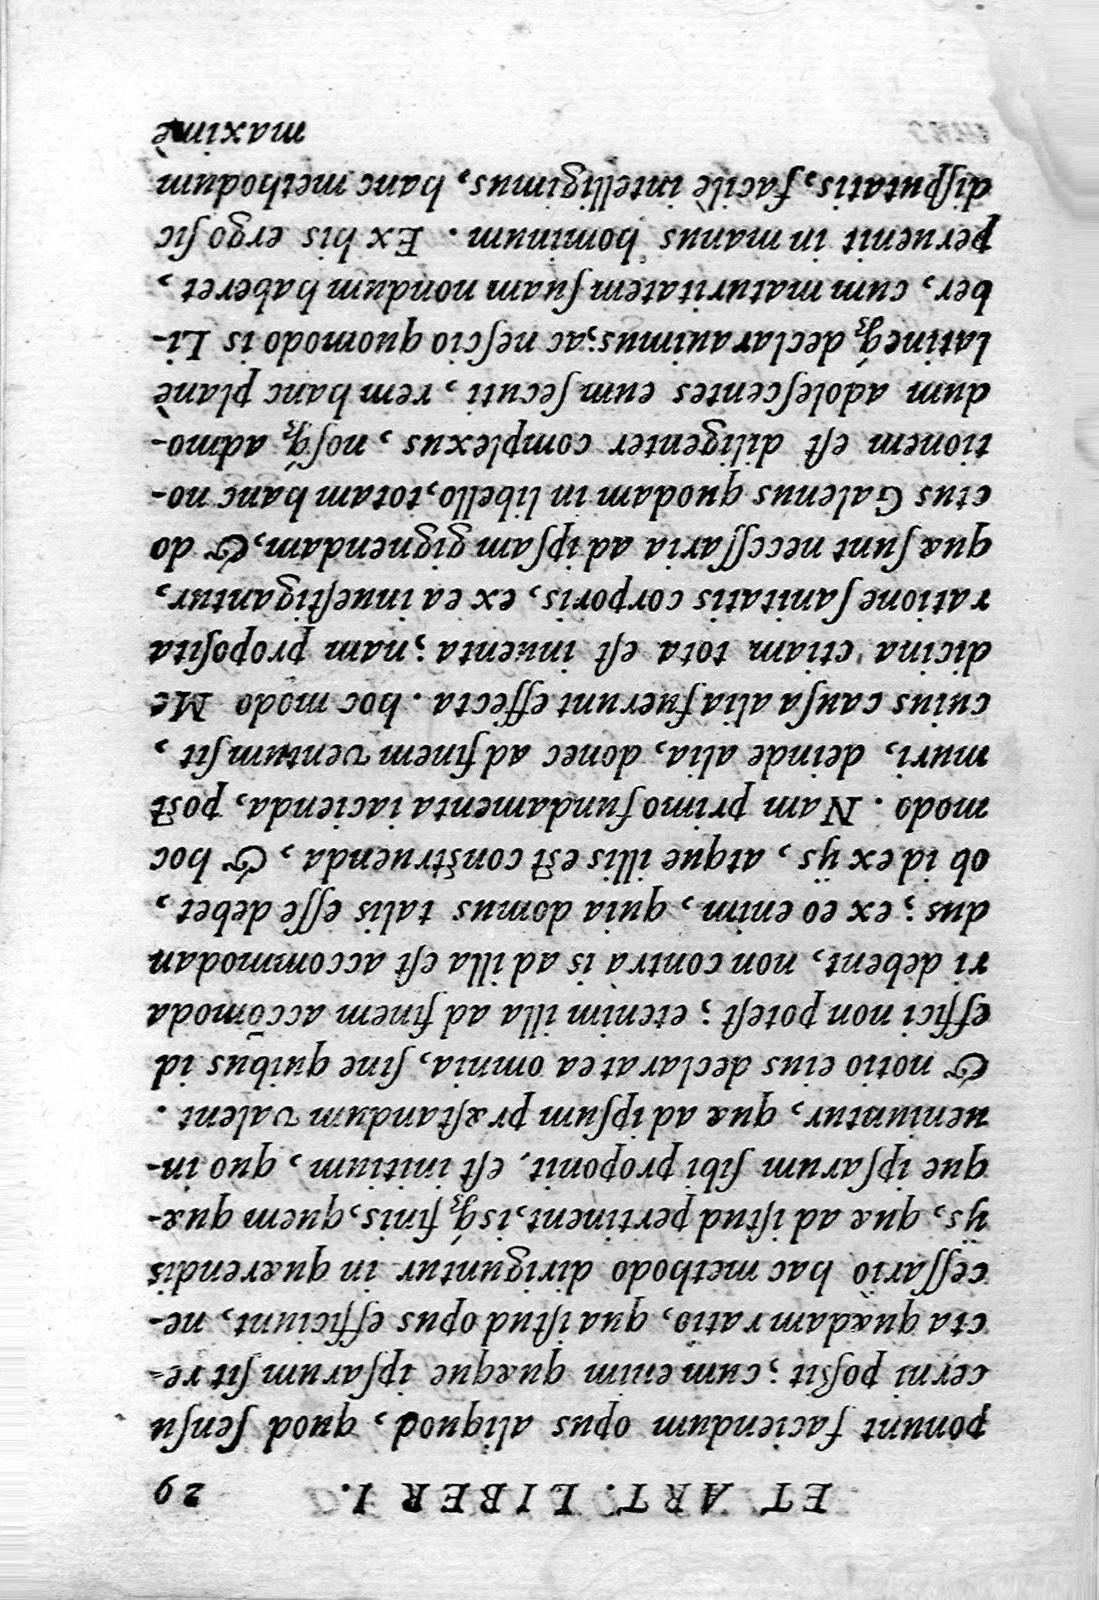 ET ART. LIBER I. 29
ponunt faciendum opus aliquod, quod ſenſu
cerni poßit; cum enim quæque ipſarum ſit re-
cta quædam ratio, qua iſtud opus efficiunt, ne-
ceſſario hac methodo diriguntur in quærendis
ijs, quæ ad iſtud pertinent, isq́; finis, quem quæ-
que ipſarum ſibi proponit, eſt initium, quo in-
ueniuntur, quæ ad ipſum præſtandum valent.
& notio eius declarat ea omnia, ſine quibus id
effici non poteſt; etenim illa ad finem accōmoda
ri debent, non contrà is ad illa eſt accommodan
dus; ex eo enim, quia domus talis eſſe debet,
ob id ex ijs, atque illis eſt conſtruenda, & hoc
modo. Nam primo fundamenta iacienda, poſt
muri, deinde alia, donec ad finem ventum ſit,
cuius cauſa alia fuerunt effecta. hoc modo Me
dicina etiam tota eſt inuenta; nam propoſita
ratione ſanitatis corporis, ex ea inueſtigantur,
quæ ſunt neceſſaria ad ipſam gignendam, & do
ctus Galenus quodam in libello, totam hanc no-
tionem eſt diligenter complexus, noſq́; admo-
dum adoleſcentes eum ſecuti, rem hanc planè
latineq́; declarauimus; ac neſcio quomodo is Li-
ber, cum maturitatem ſuam nondum haberet,
peruenit in manus hominum. Ex his ergo ſic
diſputatis, facilè intelligimus, hanc methodum
maximè